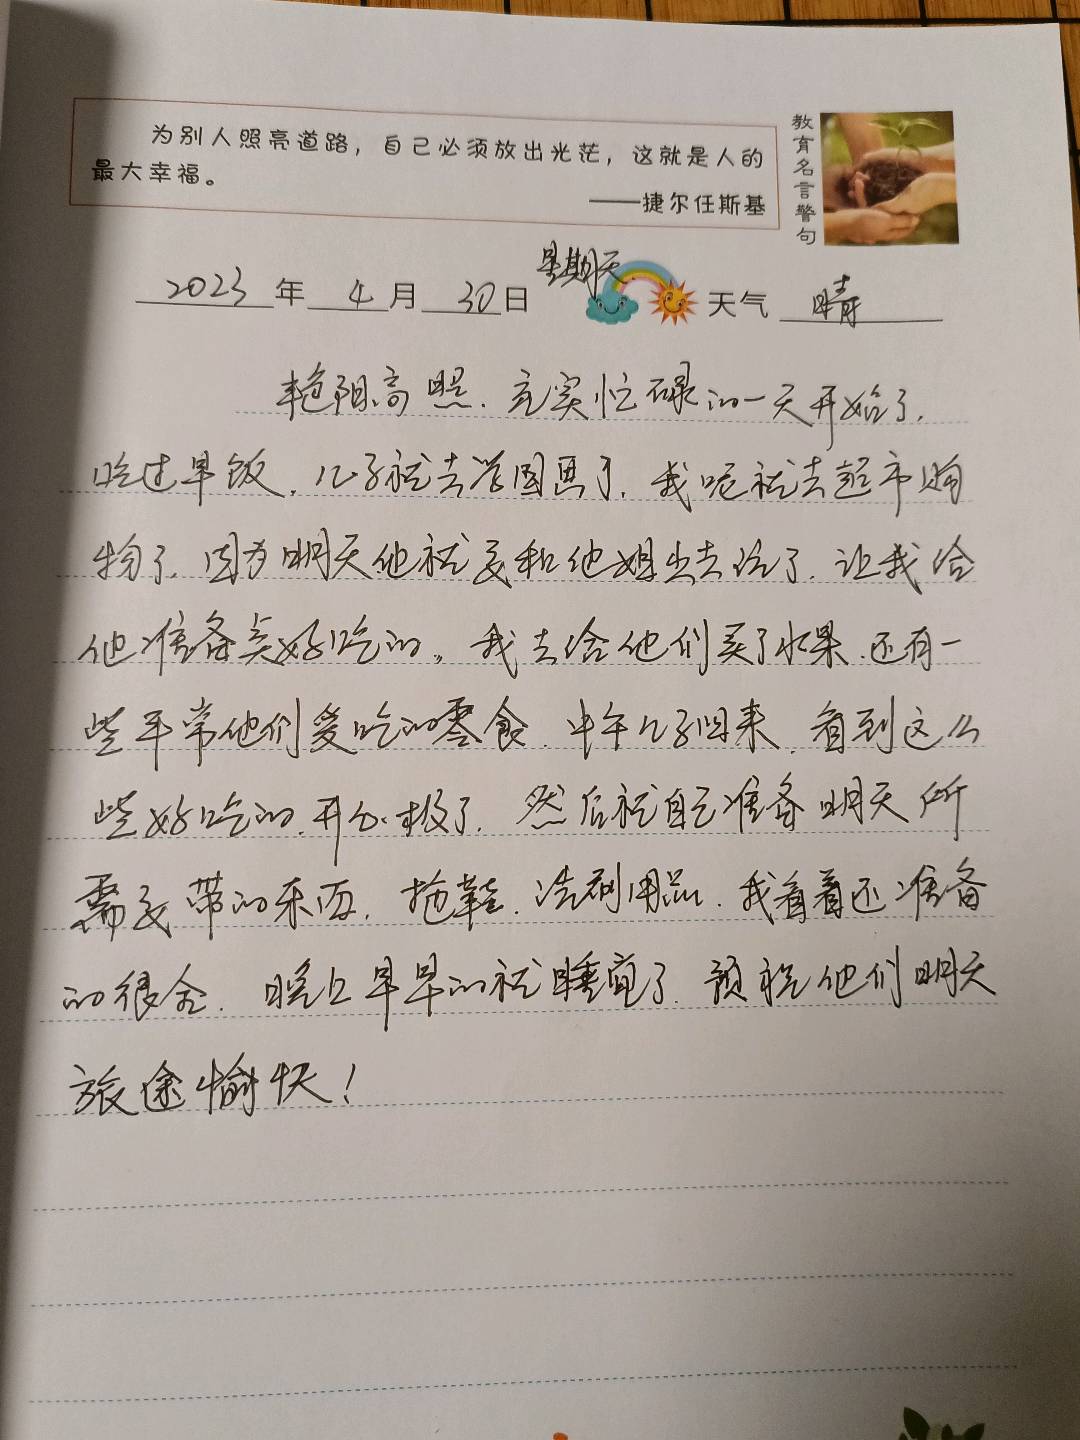 为别人照亮道路，自己必须放出光芒，这就是人的
最大幸福。
——捷尔任斯基
教育名言警句
2023年4月30日 星期天 天气 晴
艳阳高照、充实忙碌的一天开始了，
吃过早饭，儿子就去学国画了，我呢就去超市购
物了，因为明天他就要和他姐出去玩了，让我给
他准备点好吃的。我去给他们买了水果，还有一
些平常他们爱吃的零食，中午儿子回来，看到这么
些好吃的，开心极了，然后就自己准备明天所
需要带的东西，拖鞋，洗刷用品，我看着还准备
的很全，晚上早早的就睡觉了，预祝他们明天
旅途愉快！